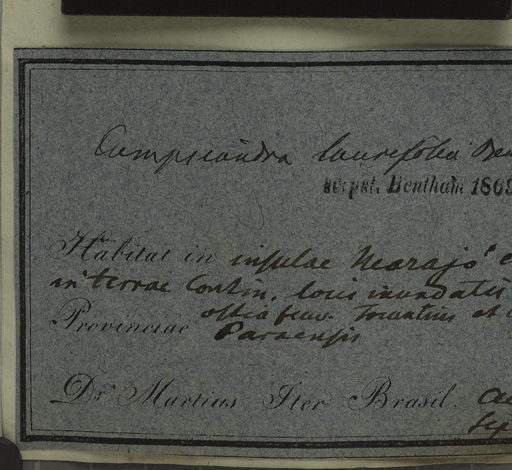 Campsiandra laurifolia Ben
script. Bentham 1869
Habitat in insulae Marajó
in terrae Contin. locis inundatis
ostia fluv. Tocantins et
Provinciae Paraensis
Dr. Martius Iter Brasil.
Sep